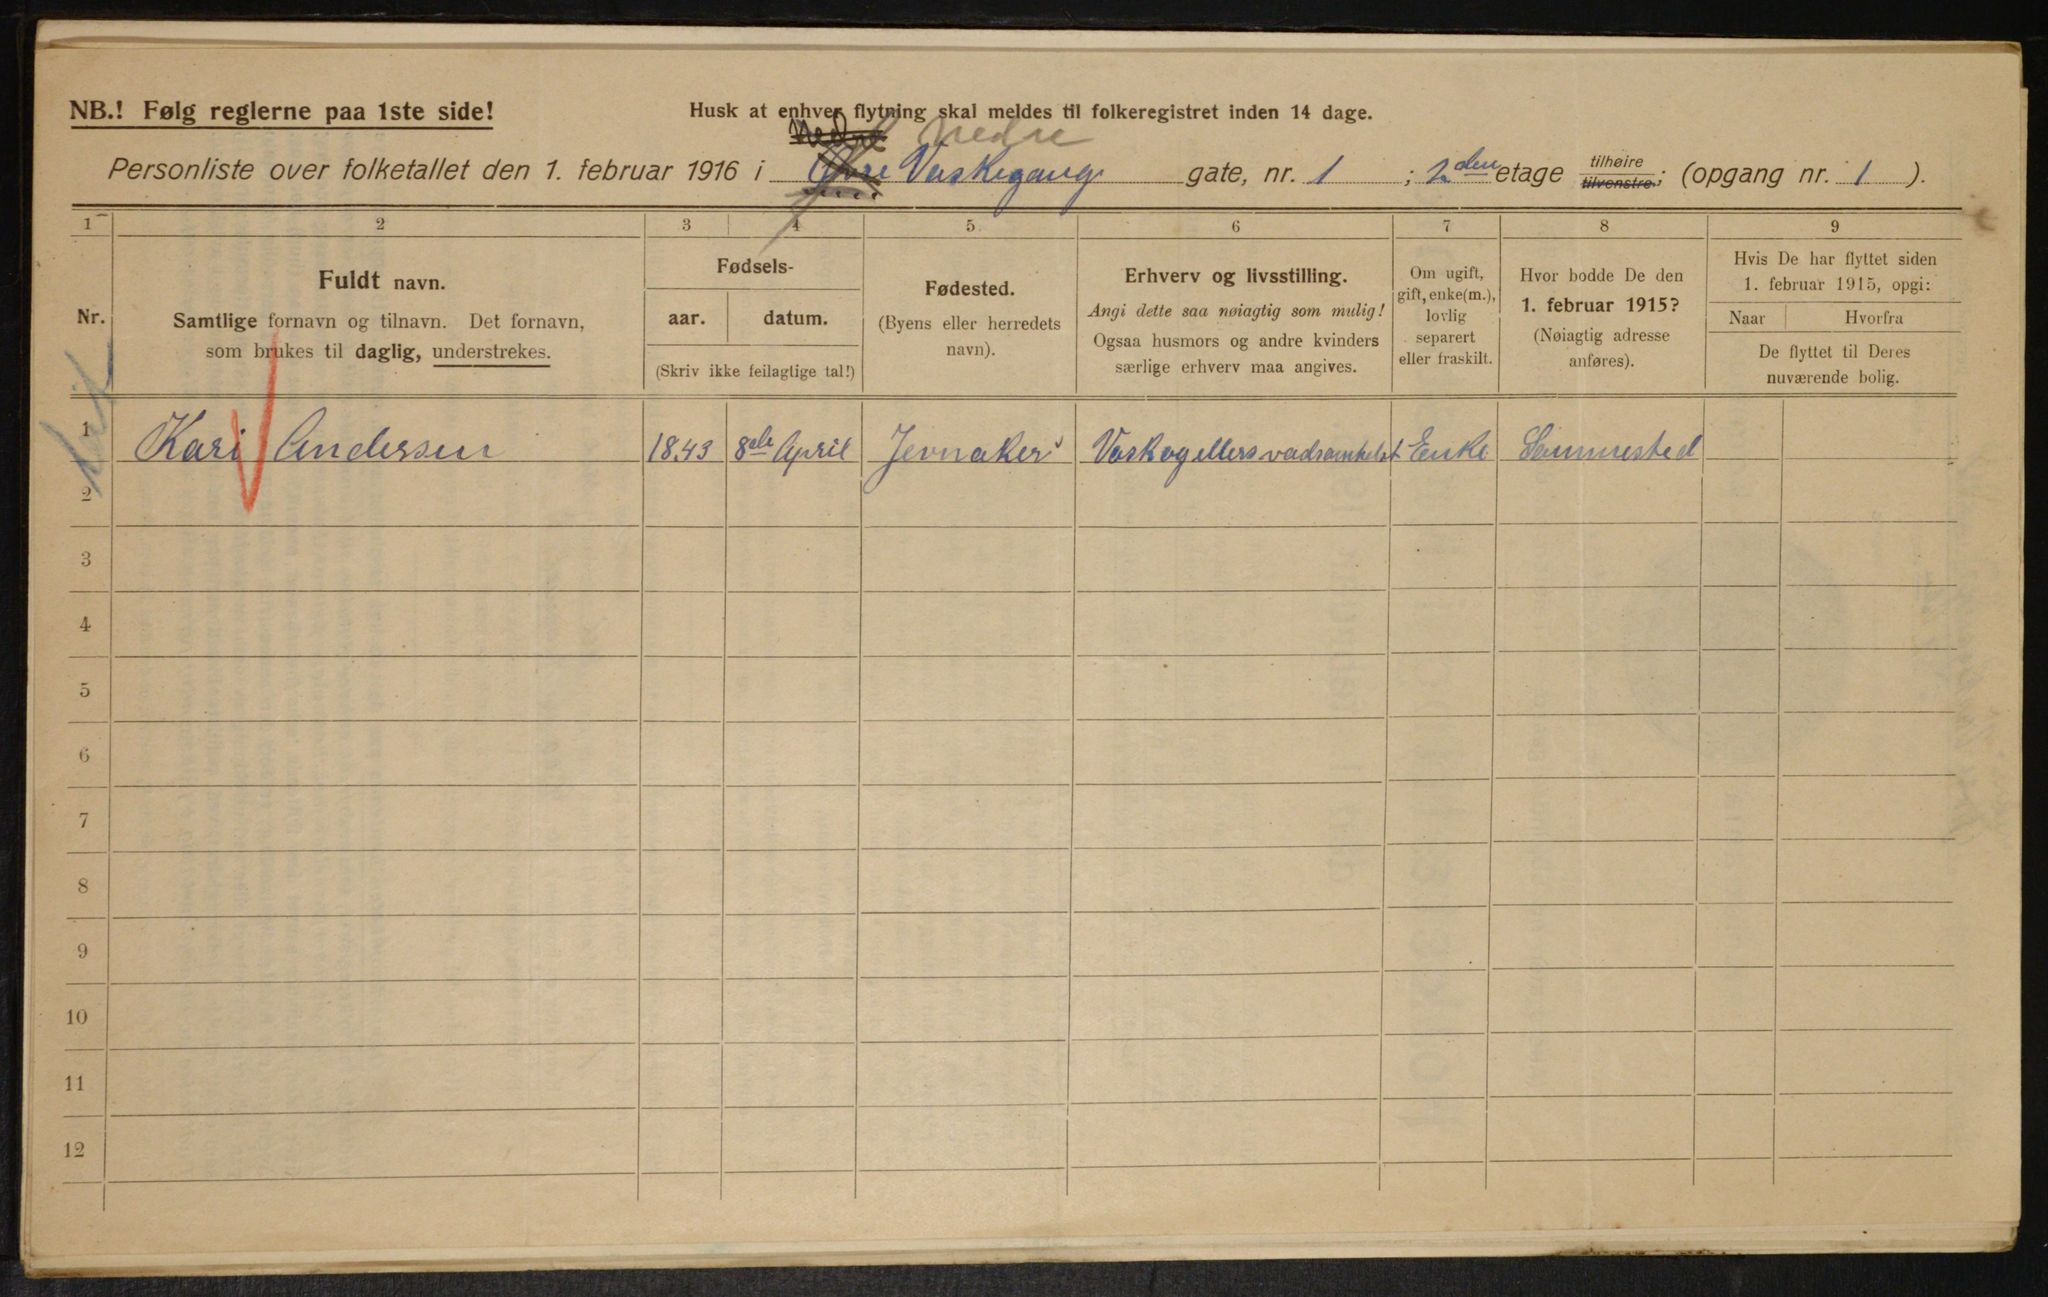 NB.! Følg reglerne paa 1ste side!
Husk at enhver flytning skal meldes til folkeregistret inden 14 dage.
Nedre Nedre
Personliste over folketallet den 1. februar 1916 i Øvre Vaskegang gate, nr. 1 ; 2den etage tilhøire tilvenstre; (opgang nr. 1 ).
1 2 3 4 5 6 7 8 9
Nr.
Fuldt navn.
Samtlige fornavn og tilnavn. Det fornavn,
som brukes til daglig, understrekes.
Fødsels-
aar. datum.
(Skriv ikke feilagtige tal!)
Fødested.
(Byens eller herredets
navn).
Erhverv og livsstilling.
Angi dette saa nøiagtig som mulig!
Ogsaa husmors og andre kvinders
særlige erhverv maa angives.
Om ugift,
gift, enke(m.),
lovlig
separert
eller fraskilt.
Hvor bodde De den
1. februar 1915?
(Nøiagtig adresse
anføres).
Hvis De har flyttet siden
1. februar 1915, opgi:
Naar Hvorfra
De flyttet til Deres
nuværende bolig.
1 Kari Andersen 1843 8de April Jevnaker Enke Sammested
2
3
4
5
6
7
8
9
10
11
12